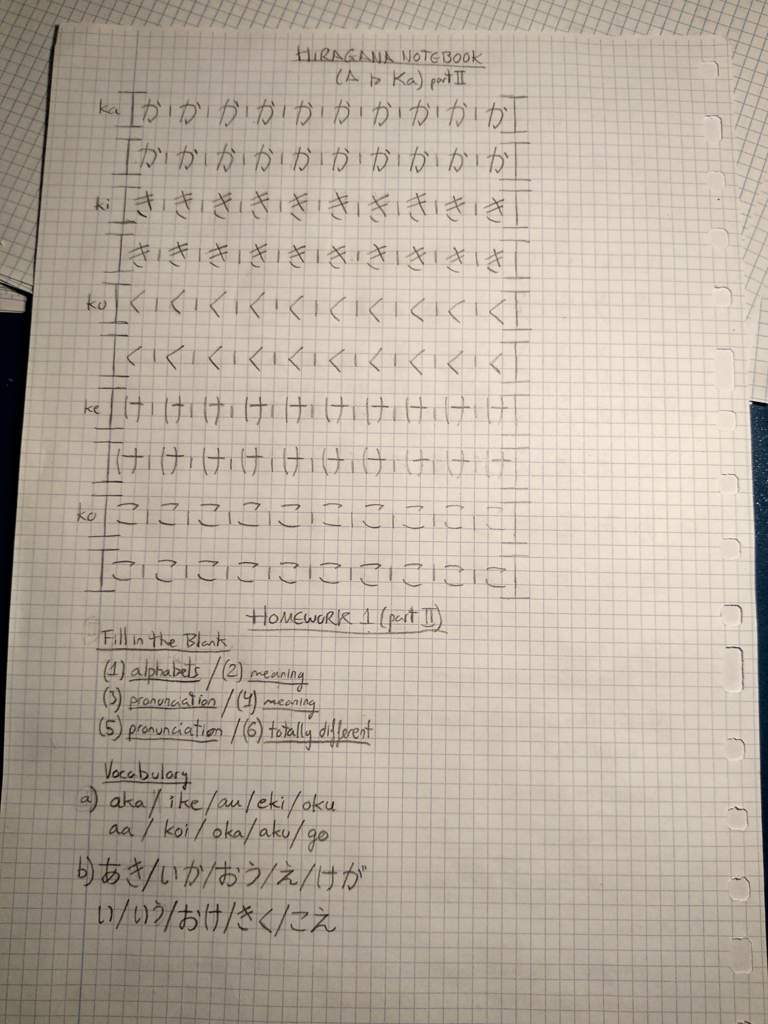 HIRAGANA NOTEBOOK
(A ▷ Ka) part II
ka か か か か か か か か か か
か か か か か か か か か か
ki き き き き き き き き き き
き き き き き き き き き き
ku く く く く く く く く く く
く く く く く く く く く く
ke け け け け け け け け け け
け け け け け け け け け け
ko こ こ こ こ こ こ こ こ こ こ
こ こ こ こ こ こ こ こ こ こ
HOMEWORK 1 (part II)
Fill in the Blank
(1) alphabets / (2) meaning
(3) pronunciation / (4) meaning
(5) pronunciation / (6) totally different
Vocabulary
a) aka / ike / au / eki / oku
aa / koi / oka / aku / go
b) あき/いか/おう/え/けが
い/いう/おけ/きく/こえ